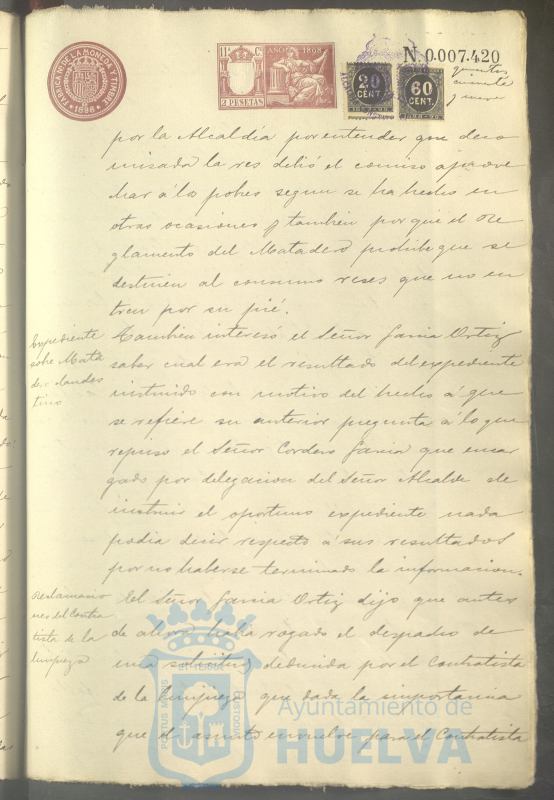 FABRICA N. DE LA MONEDA Y TIMBRE
* 1898 *
11ª C.
AÑO 1898
2 PESETAS
20
CENT.
1898-99
60
CENT.
1898-99
N. 0.007.420
por la Alcaldía por entender que deco
misada la res debió el comiso aprove
char á los pobres segun se ha hecho en
otras ocasiones y tambien por que el Re
glamento del Matadero prohibe que se
destinen al consumo reses que no en
tren por su pié.
Expediente
sobre Mata
dero clandes
tino
Tambien interesó el Señor Garcia Ortiz
saber cual era el resultado del expediente
instruido con motivo del hecho á que
se refiere su anterior pregunta á lo que
repuso el Señor Cordero Garcia que encar
gado por delegacion del Señor Alcalde de
instruir el oportuno expediente nada
podia decir respecto á sus resultados
por no haberse terminado la informacion.
Reclamacio
nes del Contra
tista de la
limpieza
El Señor Garcia Ortiz dijo que antes
de ahora habia rogado el despacho de
una solicitud deducida por el Contratista
de la limpieza que dada la importancia
que el asunto envuelve para el Contratista
Ayuntamiento de
HUELVA